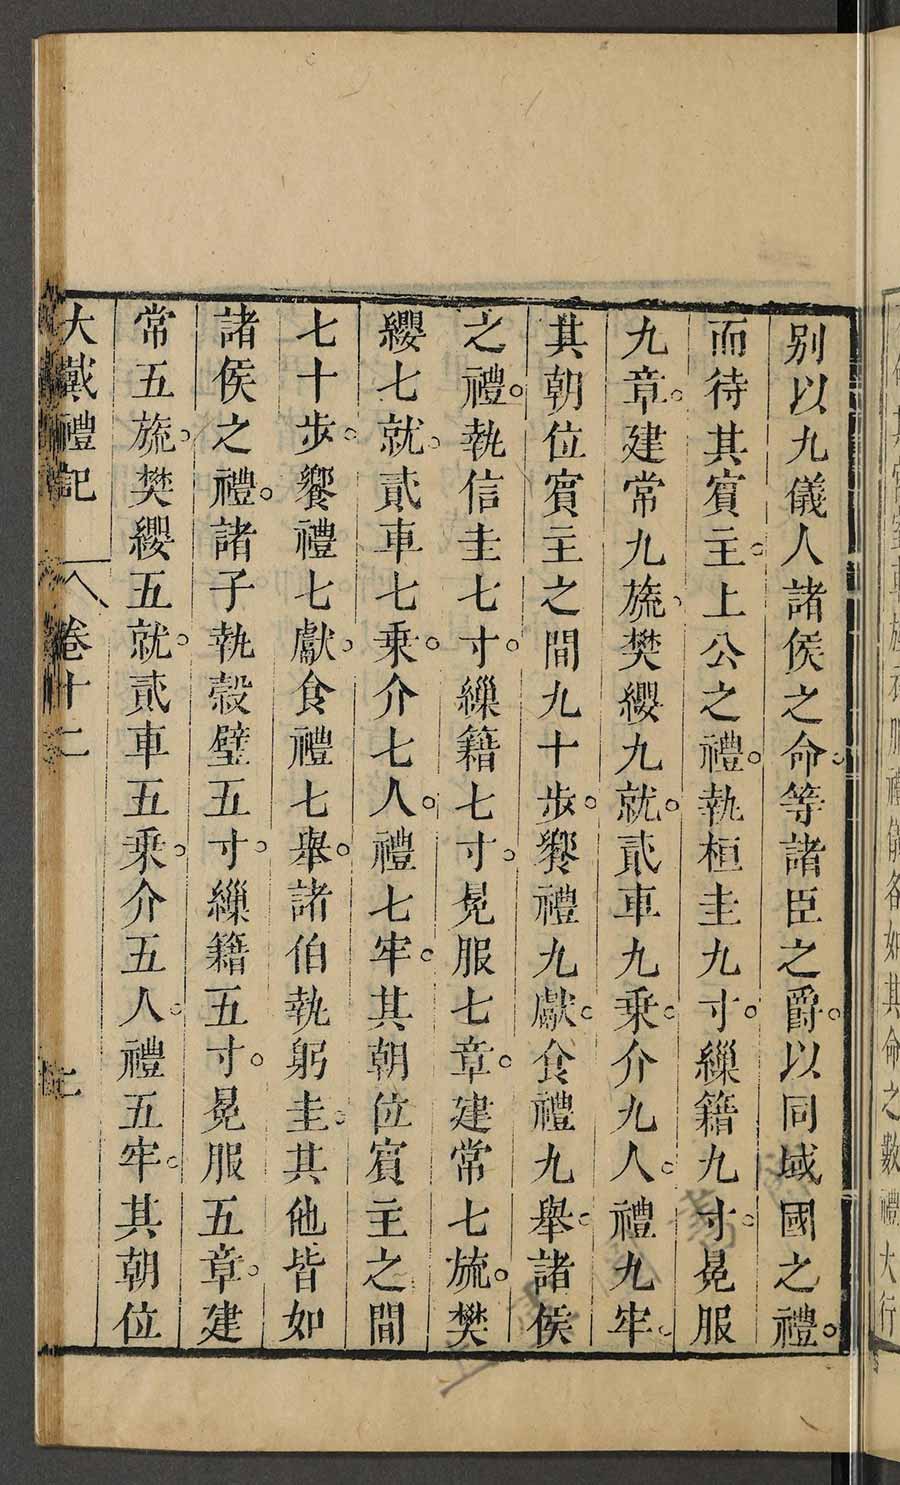 别以九儀人諸侯之命。等諸臣之爵。以同域國之禮。
而待其賓主。上公之禮。執桓圭九寸。繅籍九寸。冕服
九章。建常九旒、樊纓九就。貳車九乗。介九人。禮九牢。
其朝位賓主之間九十歩。饗禮九獻。食禮九舉。諸侯
之禮。執信圭七寸。繅籍七寸。冕服七章。建常七旒。樊
纓七就。貳車七乗。介七人。禮七牢。其朝位賓主之間
七十歩。饗禮七獻。食禮七舉。諸伯執躬圭。其他皆如
諸侯之禮。諸子執榖璧五寸。繅籍五寸。冕服五章。建
常五旒。樊纓五就。貳車五乗。介五人。禮五牢。其朝位
大戴禮記 卷十二